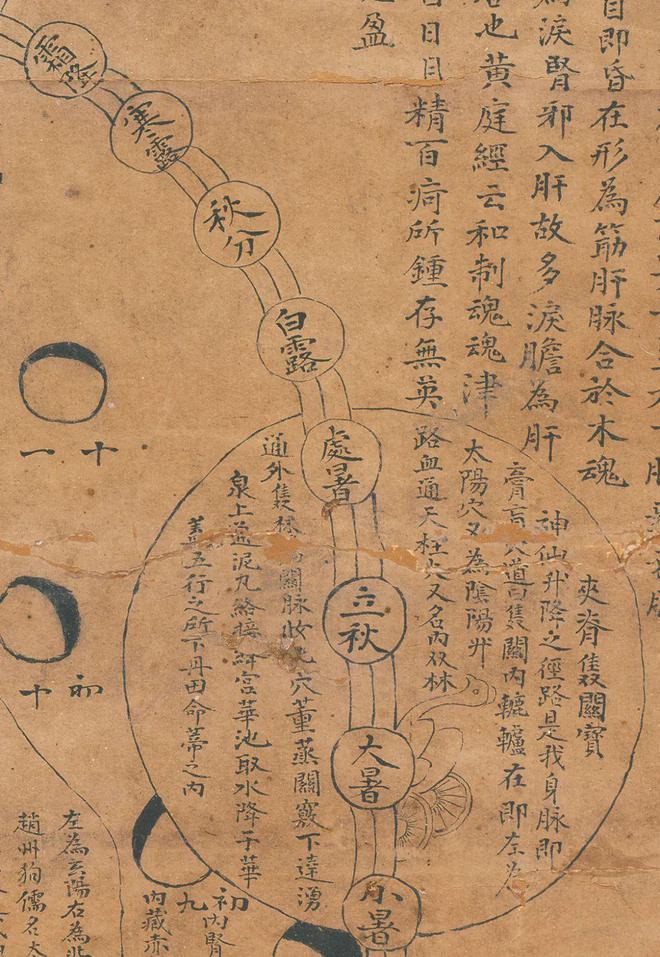 目即昏在形為筋肝脉合於木魂
淚腎邪入肝故多淚膽為肝
也黃庭經云和制魂魂津
日目精百痾所鍾存無英
盈
霜降
寒露
秋分
白露
處暑
立秋
大暑
小暑
夾脊雙關寶
神仙升降之徑路是我身脉即
膏肓穴道雙關內轆轤在即奈為
太陽穴又為陰陽升
路血通天柱穴又名內双林
通外雙林關脉收穴董蒸關竅下達湧
泉上通泥丸絡接絳宮華池取水降于華
蓋五行之所下丹田命蒂之內
十一
初十
初九
內腎
內藏赤
左為玄陽右為
趙州狗儒名太